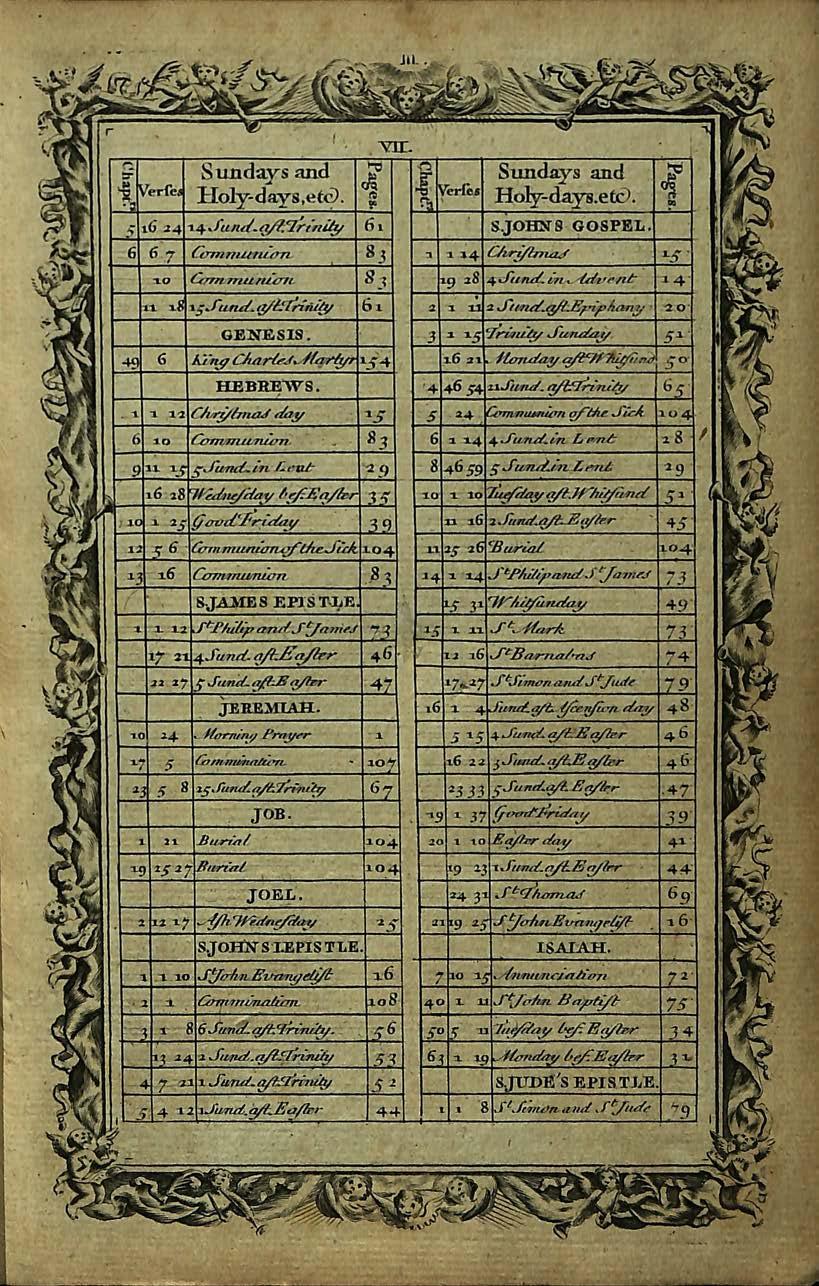 III.
VII.
Chapt.rs Verſes Sundays and Holy-days,etc). Pages.
5 16 24 14 Sund. aft. Trinity 61
6 6 7 Communion 83
10 Communion 83
11 18 15 Sund. aft. Trinity 61
GENESIS.
49 6 King Charles Martyr 154
HEBREWS.
1 1 12 Chriſtmas day 15
6 10 Communion 83
9 11 15 5 Sund. in Lent 29
16 28 Wedneſday beſ. Eaſter 35
10 1 25 Good Friday 39
12 5 6 Communion of the Sick 104
13 16 Communion 83
S. JAMES EPISTLE.
1 1 12 St. Philip and St. James 73
17 21 4 Sund. aft. Eaſter 46
22 27 5 Sund. aft. Eaſter 47
JEREMIAH.
10 24 Morning Prayer 1
17 5 Commination 107
23 5 8 25 Sund. aft. Trinity 67
JOB.
1 21 Burial 104
19 25 27 Burial 104
JOEL.
2 12 17 Aſh Wedneſday 25
S. JOHN'S I. EPISTLE.
1 1 10 St. John Evangeliſt 16
2 1 Commination 108
3 1 8 6 Sund. aft. Trinity. 56
13 24 2 Sund. aft. Trinity 53
4 7 21 1 Sund. aft. Trinity 52
5 4 12 1 Sund. aft. Eaſter 44
Chapt.rs Verſes Sundays and Holy-days.etc). Pages.
S. JOHNS GOSPEL.
1 1 14 Chriſtmas 15
19 28 4 Sund. in Advent 14
2 1 11 2 Sund. aft. Epiphany 20
3 1 15 Trinity Sunday 51
16 21 Monday aft. Whitſund 50
4 46 54 21 Sund. aft. Trinity 65
5 24 Communion of the Sick 104
6 1 14 4 Sund. in Lent 28
8 46 59 5 Sund. in Lent 29
10 1 10 Tueſday aft. Whitſund 51
11 16 2 Sund. aft. Eaſter 45
11 25 26 Burial 104
14 1 14 St. Philip and St. James 73
15 31 Whitſunday 49
15 1 11 St. Mark 73
12 16 St. Barnabas 74
17 27 St. Simon and St. Jude 79
16 1 4 Sund. aft. Aſcenſion day 48
5 15 4 Sund. aft. Eaſter 46
16 22 3 Sund. aft. Eaſter 46
23 33 5 Sund. aft. Eaſter 47
19 1 37 Good Friday 39
20 1 10 Eaſter day 41
19 23 1 Sund. aft. Eaſter 44
24 31 St. Thomas 69
21 19 25 St. John Evangeliſt 16
ISAIAH.
7 10 15 Annunciation 72
40 1 11 St. John Baptiſt 75
50 5 11 Tueſday beſ. Eaſter 34
63 1 19 Monday beſ. Eaſter 31
S. JUDE'S EPISTLE.
1 1 8 St. Simon and St. Jude 79